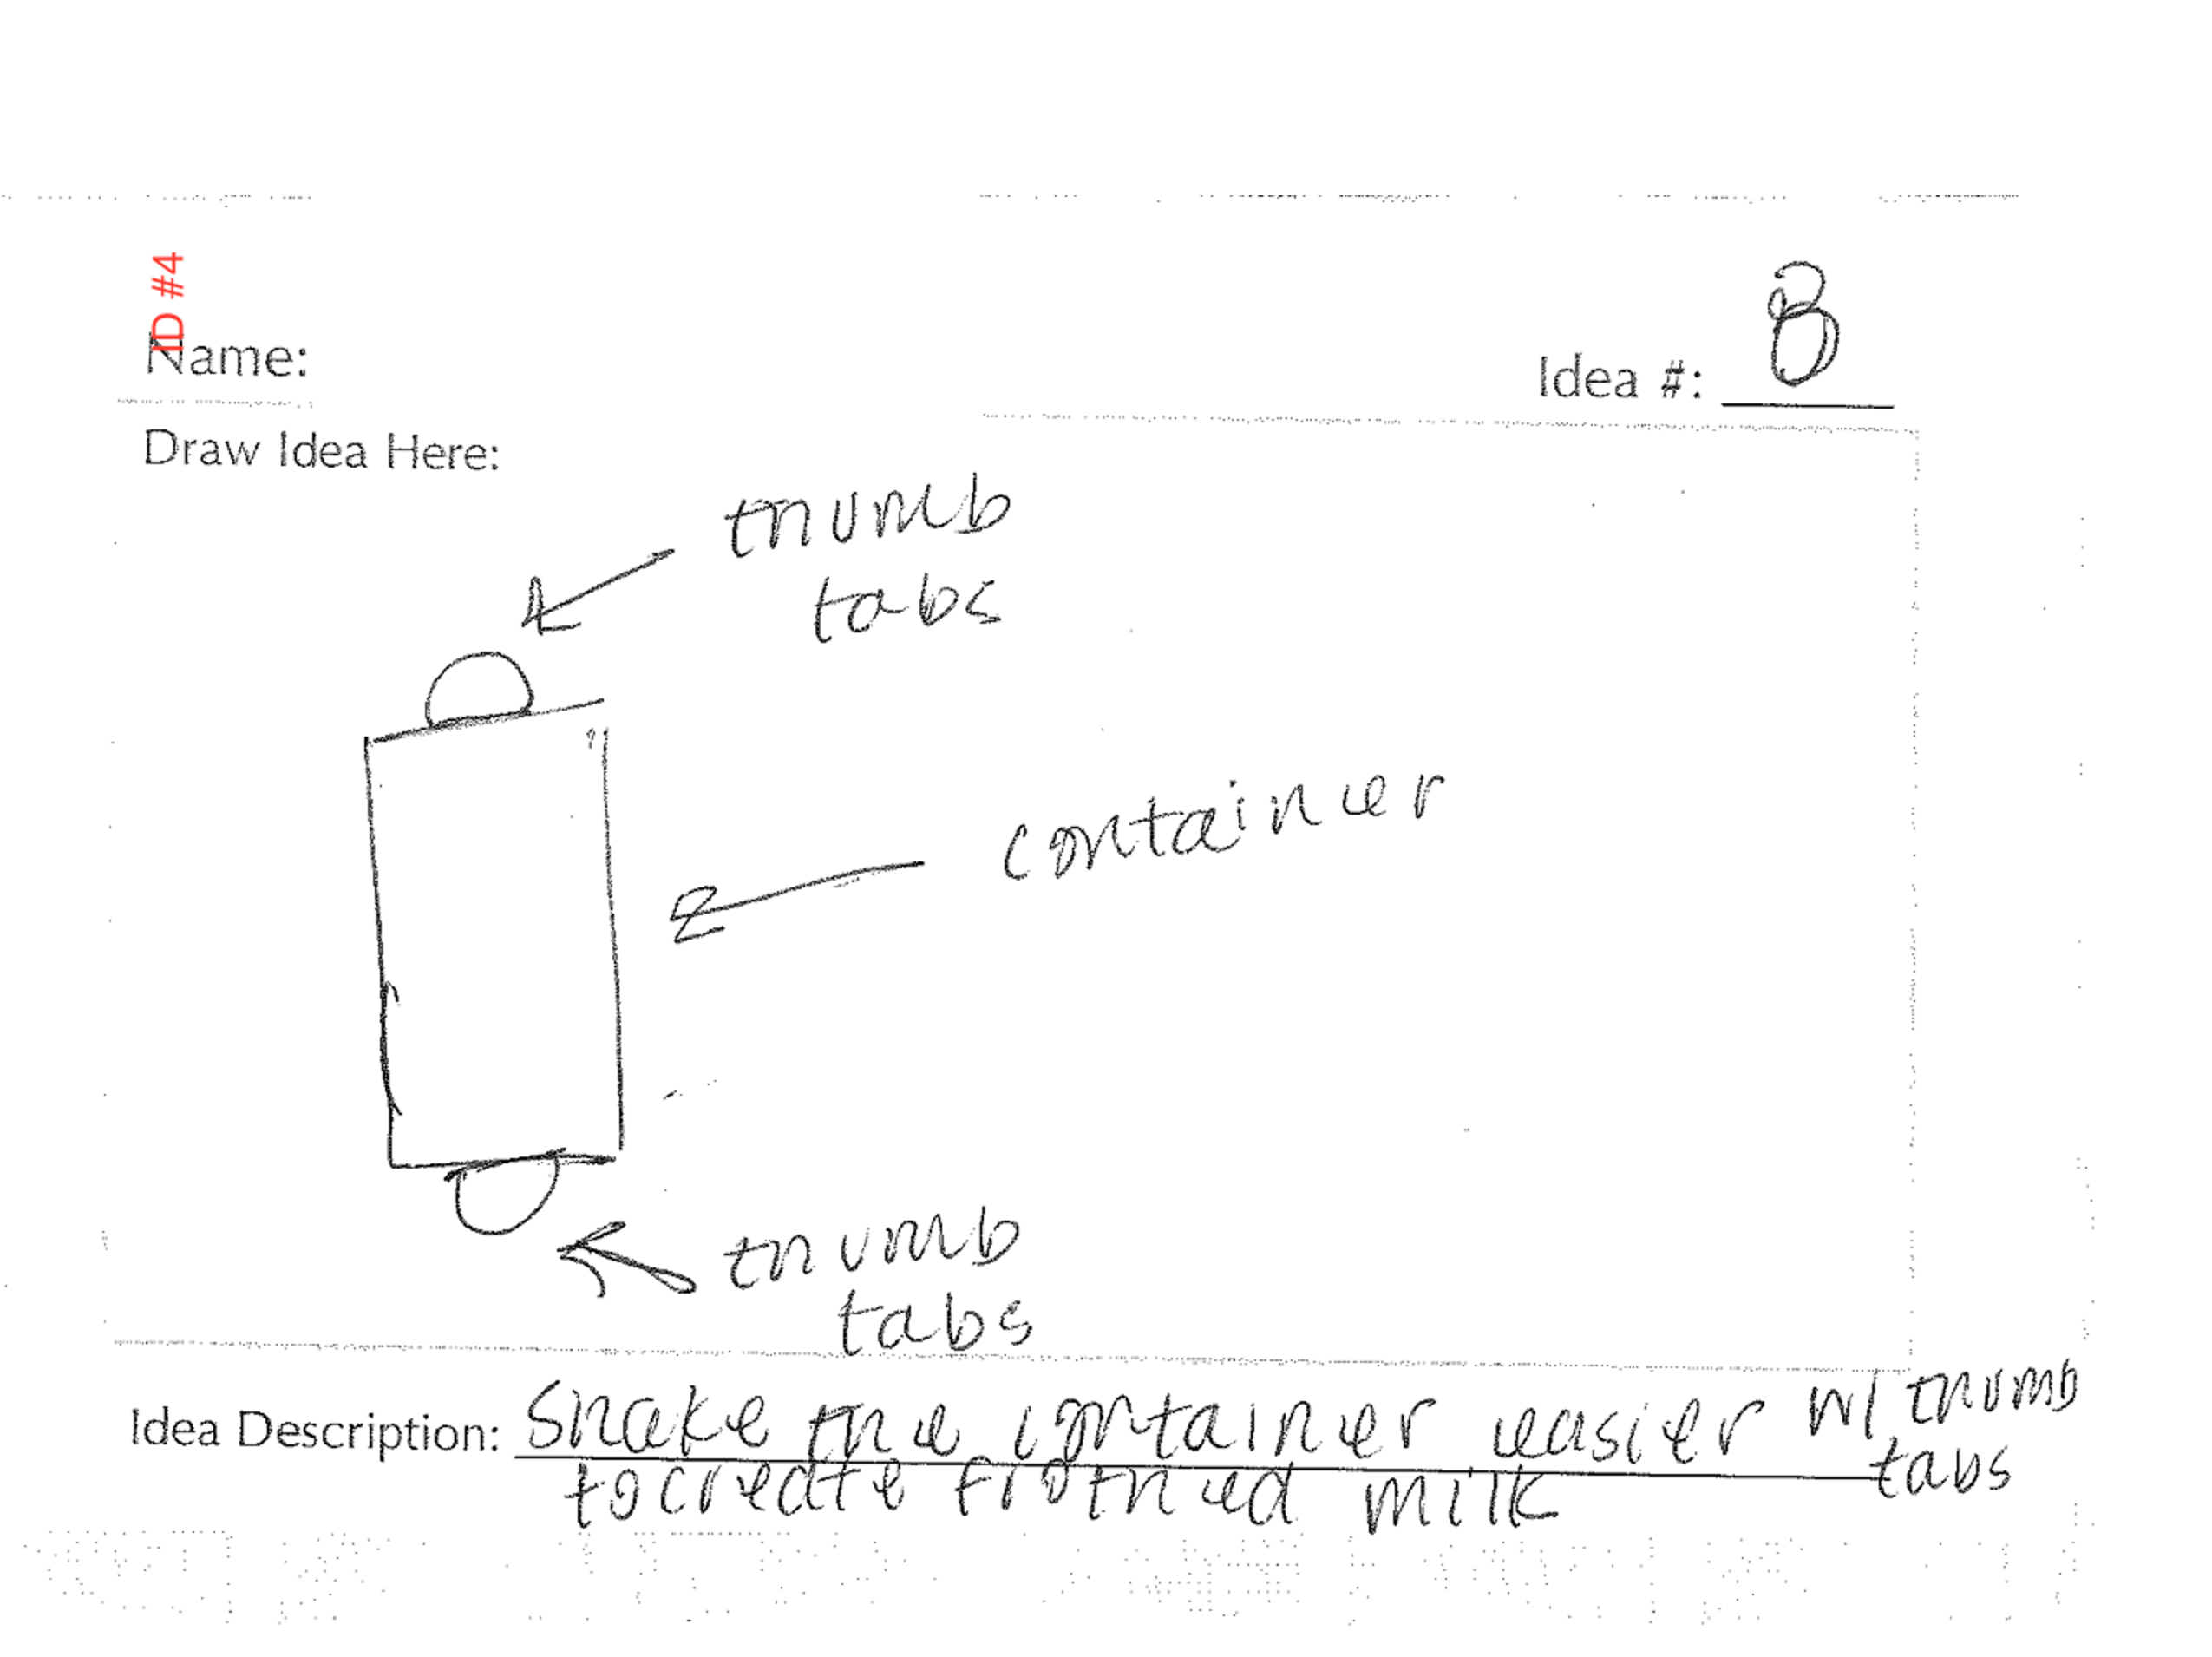 ID #4
Name:
Idea #: 8
Draw Idea Here:
thumb
tabs
container
thumb
tabs
Idea Description: Shake the container easier w/ thumb
tabs
to create frothed milk